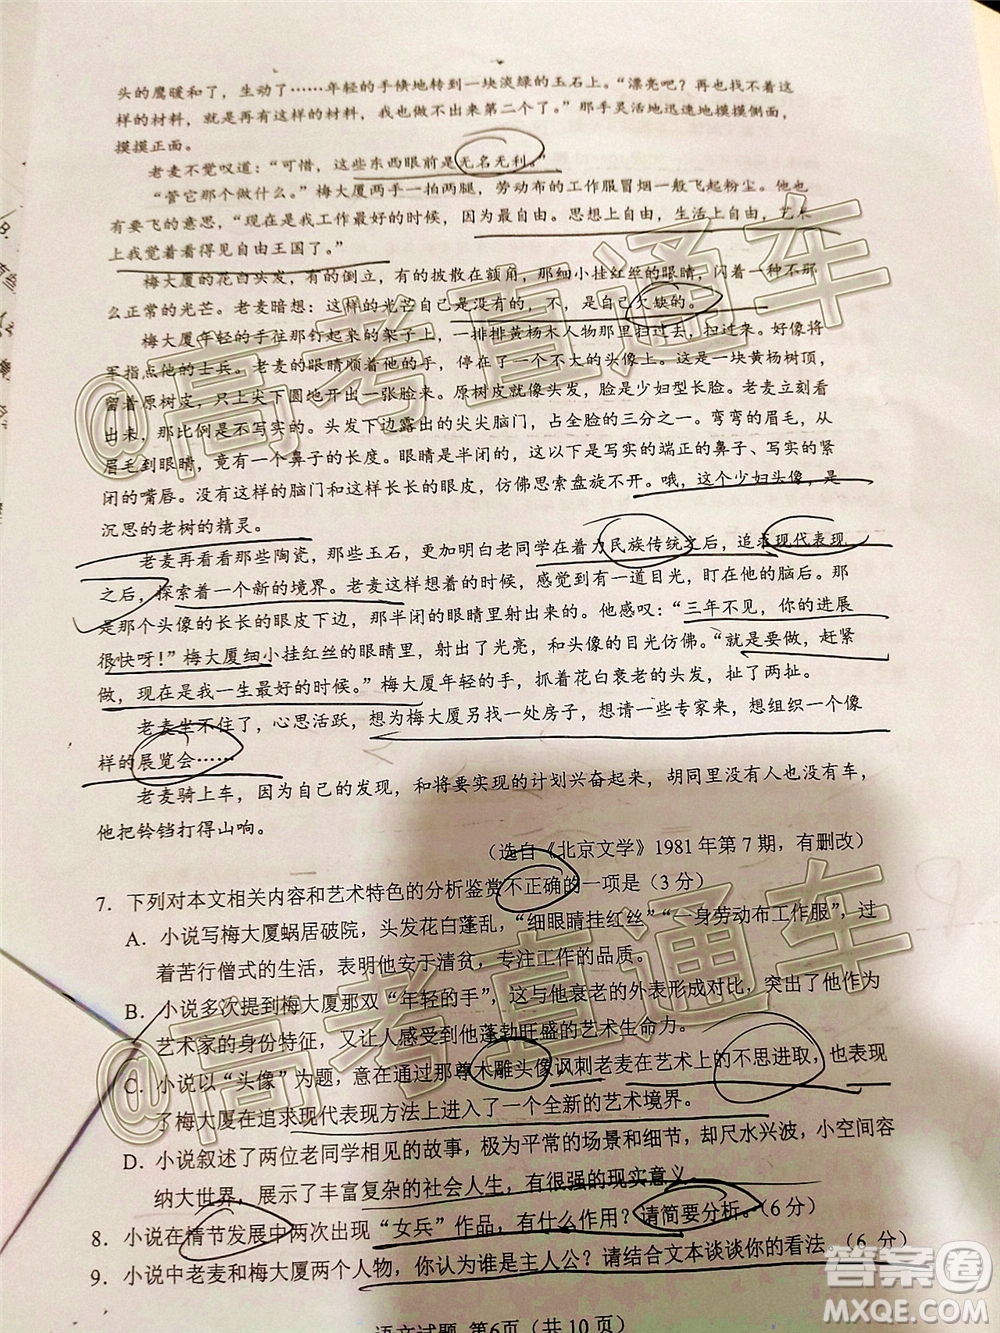 头的鹰暖和了，生动了……年轻的手倏地转到一块淡绿的玉石上。“漂亮吧？再也找不到这
样的材料，就是再有这样的材料，我也做不出来第二个了。”那手灵活地迅速地摸摸侧面，
摸摸正面。
老麦不觉叹道：“可惜，这些东西眼前是无名无利。”
“管它那个做什么。”梅大厦两手一拍两腿，劳动布的工作服冒烟一般飞起粉尘。他
有要飞的意思，“现在是我工作最好的时候，因为最自由。思想上自由，生活上自由，艺术
上我觉着看得见自由王国了。”
梅大厦的花白头发，有的倒立，有的披散在额角，细细小挂红丝的眼睛，闪着一种不那
么正常的光芒。老麦暗想：这样的光芒自己是没有的，不，是自己欠缺的。
梅大厦年轻的手往那钉起来的架子上，一排排黄杨木人物那里扫过去，扫过去。好像将
军指点他的士兵。老麦的眼睛跟着他的手，停在了一个不大的头像上。这是一块黄杨树顶，
留着原树皮，只上尖下圆地开出一张脸来。原树皮就像头发，是少妇型长脸。老麦立刻看
出来，那比例是不写实的。头发下边露出的尖尖脑门，占全脸的三分之一。弯弯的眉毛，从
眉毛到眼睛，竟有一个鼻子的长度。眼睛是半闭的，这以下是写实的端正的鼻子、写实的紧
闭的嘴唇。没有这样的脑门和这样长长的眼皮，仿佛思索盘旋不开。哦，这个少妇头像，是
沉思的老树的精灵。
老麦再看看那些陶瓷，那些玉石，更加明白老同学在着力民族传统之后，追求现代表现
之后，探索着一个新的境界。老麦这样想着的时候，感觉到有一道目光，盯在他的脑后。那
是那个头像的长长的眼皮下边，那半闭的眼睛里射出来的。他感叹：“三年不见，你的进展
很快呀！”梅大厦细小挂红丝的眼睛里，射出了光亮，和头像的目光仿佛。“就是要做，赶紧
做，现在是我一生最好的时候。”梅大厦年轻的手，抓着花白衰老的头发，扯了两扯。
老麦坐不住了，心思活跃，想为梅大厦另找一处房子，想请一些专家来，想组织一个像
样的展览会……
老麦骑上车，因为自己的发现，和将要实现的计划兴奋起来，胡同里没人也没有车，
他把铃铛打得山响。
（选自《北京文学》1981年第7期，有删改）
7．下列对本文相关内容和艺术特色的分析鉴赏不正确的一项是（3分）
A．小说写梅大厦蜗居破院，头发花白蓬乱，“细眼睛挂红丝”“一身劳动布工作服”，过
着苦行僧式的生活，表明他安于清贫，专注工作的品质。
B．小说多次提到梅大厦那双“年轻的手”，这与他衰老的外表形成对比，突出了他作为
艺术家的身份特征，又让人感受到他蓬勃旺盛的艺术生命力。
C．小说以“头像”为题，意在通过那尊木雕头像讽刺老麦在艺术上的不思进取，也表现
了梅大厦在追求现代表现方法上进入了一个全新的艺术境界。
D．小说叙述了两位老同学的故事，极为平常的场景和细节，却尺水兴波，小空间容
纳大世界，展示了丰富复杂的社会人生，有很强的现实意义。
8．小说在情节发展中两次出现“女兵”作品，有什么作用？请简要分析。（6分）
9．小说中老麦和梅大厦两个人物，你认为谁是主人公？请结合文本谈谈你的看法。（6分）
语文试题 第6页（共10页）
@高考直通车
@高考直通车
答案圈
MXQE.COM